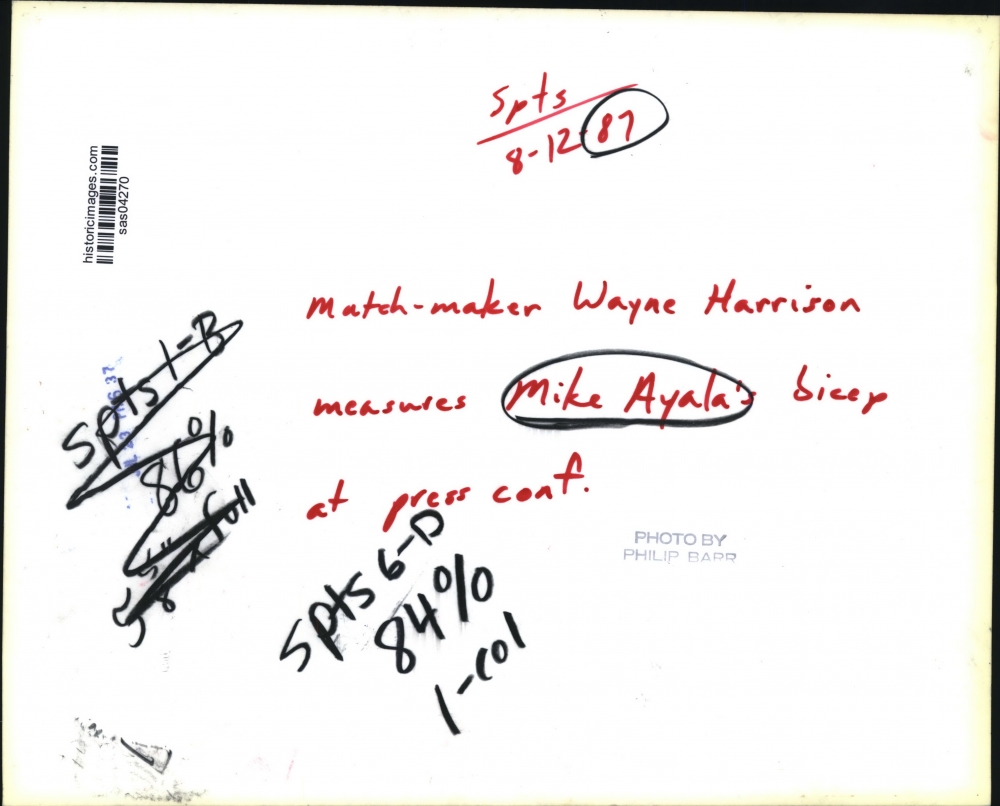 Spts
8-12-87
historicimages.com
sas04270
Match-maker Wayne Harrison
measures Mike Ayala's bicep
at press conf.
Spts 1-B
86%
full
PHOTO BY
PHILIP BARR
Spts 6-D
84%
1-col